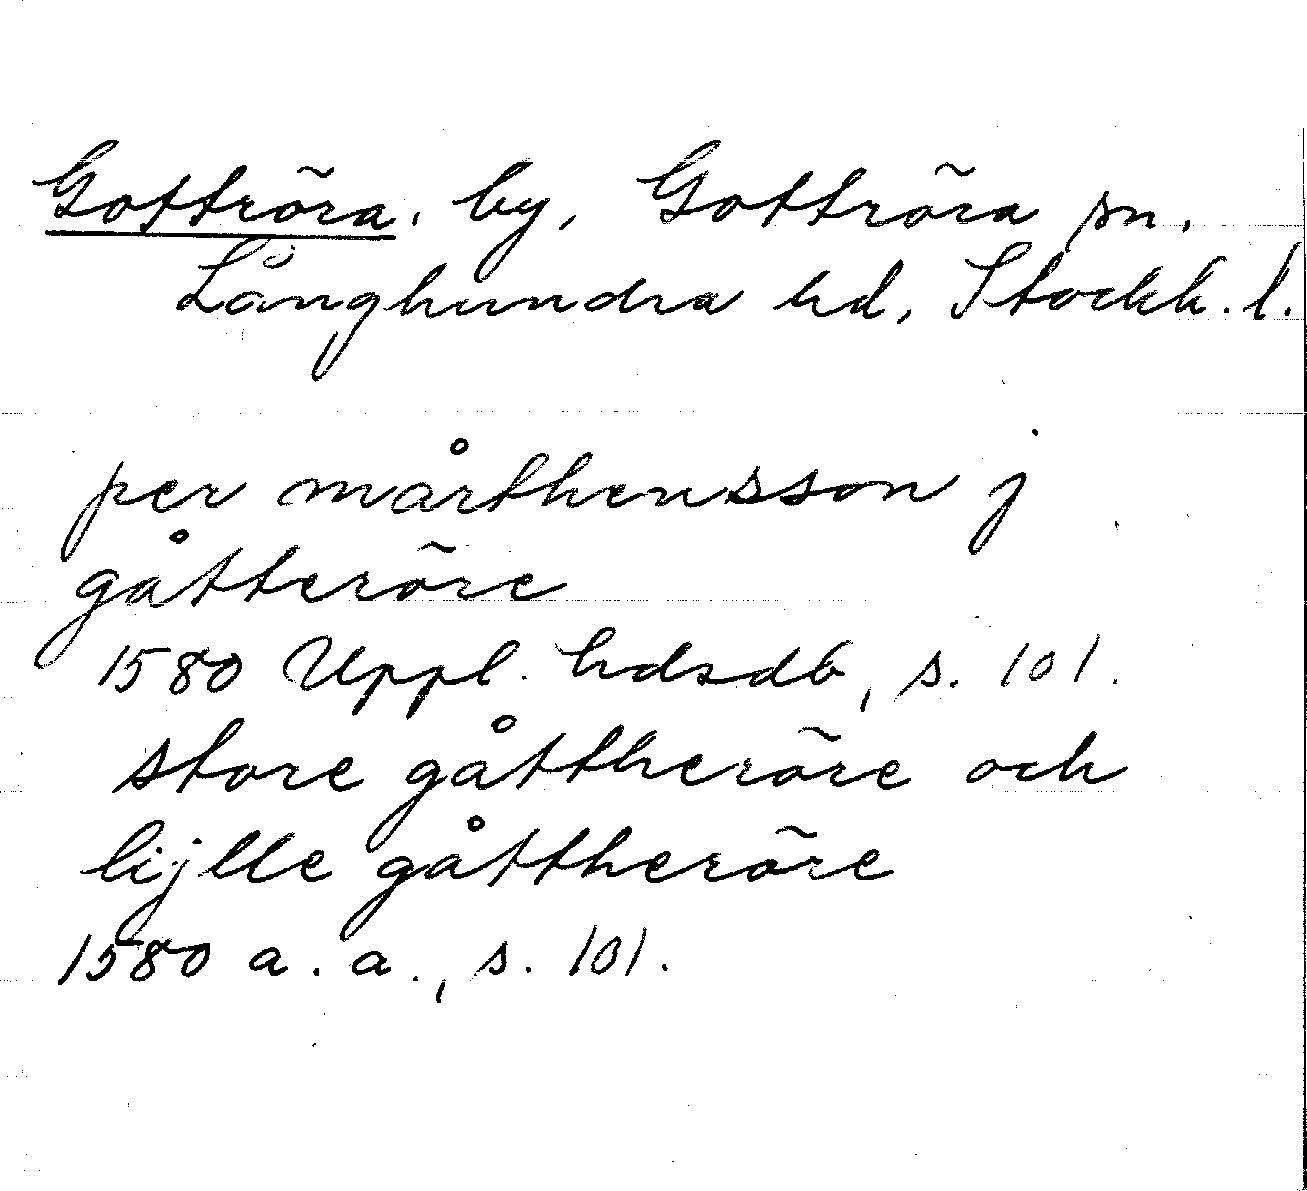 Gottröra, by, Gottröra sn.
Långhundra hd, Stockh. l.
per mårthensson j
gåtteröre
1580 Uppl. hdsdb, s. 101.
store gåttheröre och
lijlle gåttheröre
1580 a. a., s. 101.